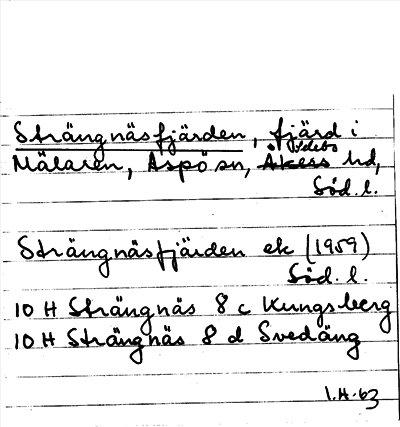 Strängnäsfjärden, fjärd i
Mälaren, Aspö sn, Åkers hd,
Söd. l.
Strängnäsfjärden ek (1959)
Söd. l.
10 H Strängnäs 8 c Kungsberg
10 H Strängnäs 8 d Svedäng
I.H.-63